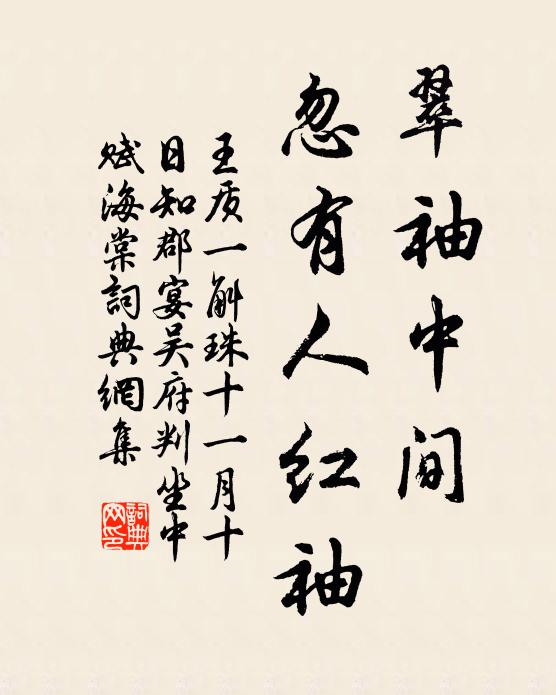 翠袖中间
忽有人红袖
王质一斛珠十一月十
日知郡宴吴府判坐中
赋海棠詞典網集
詞典
网印